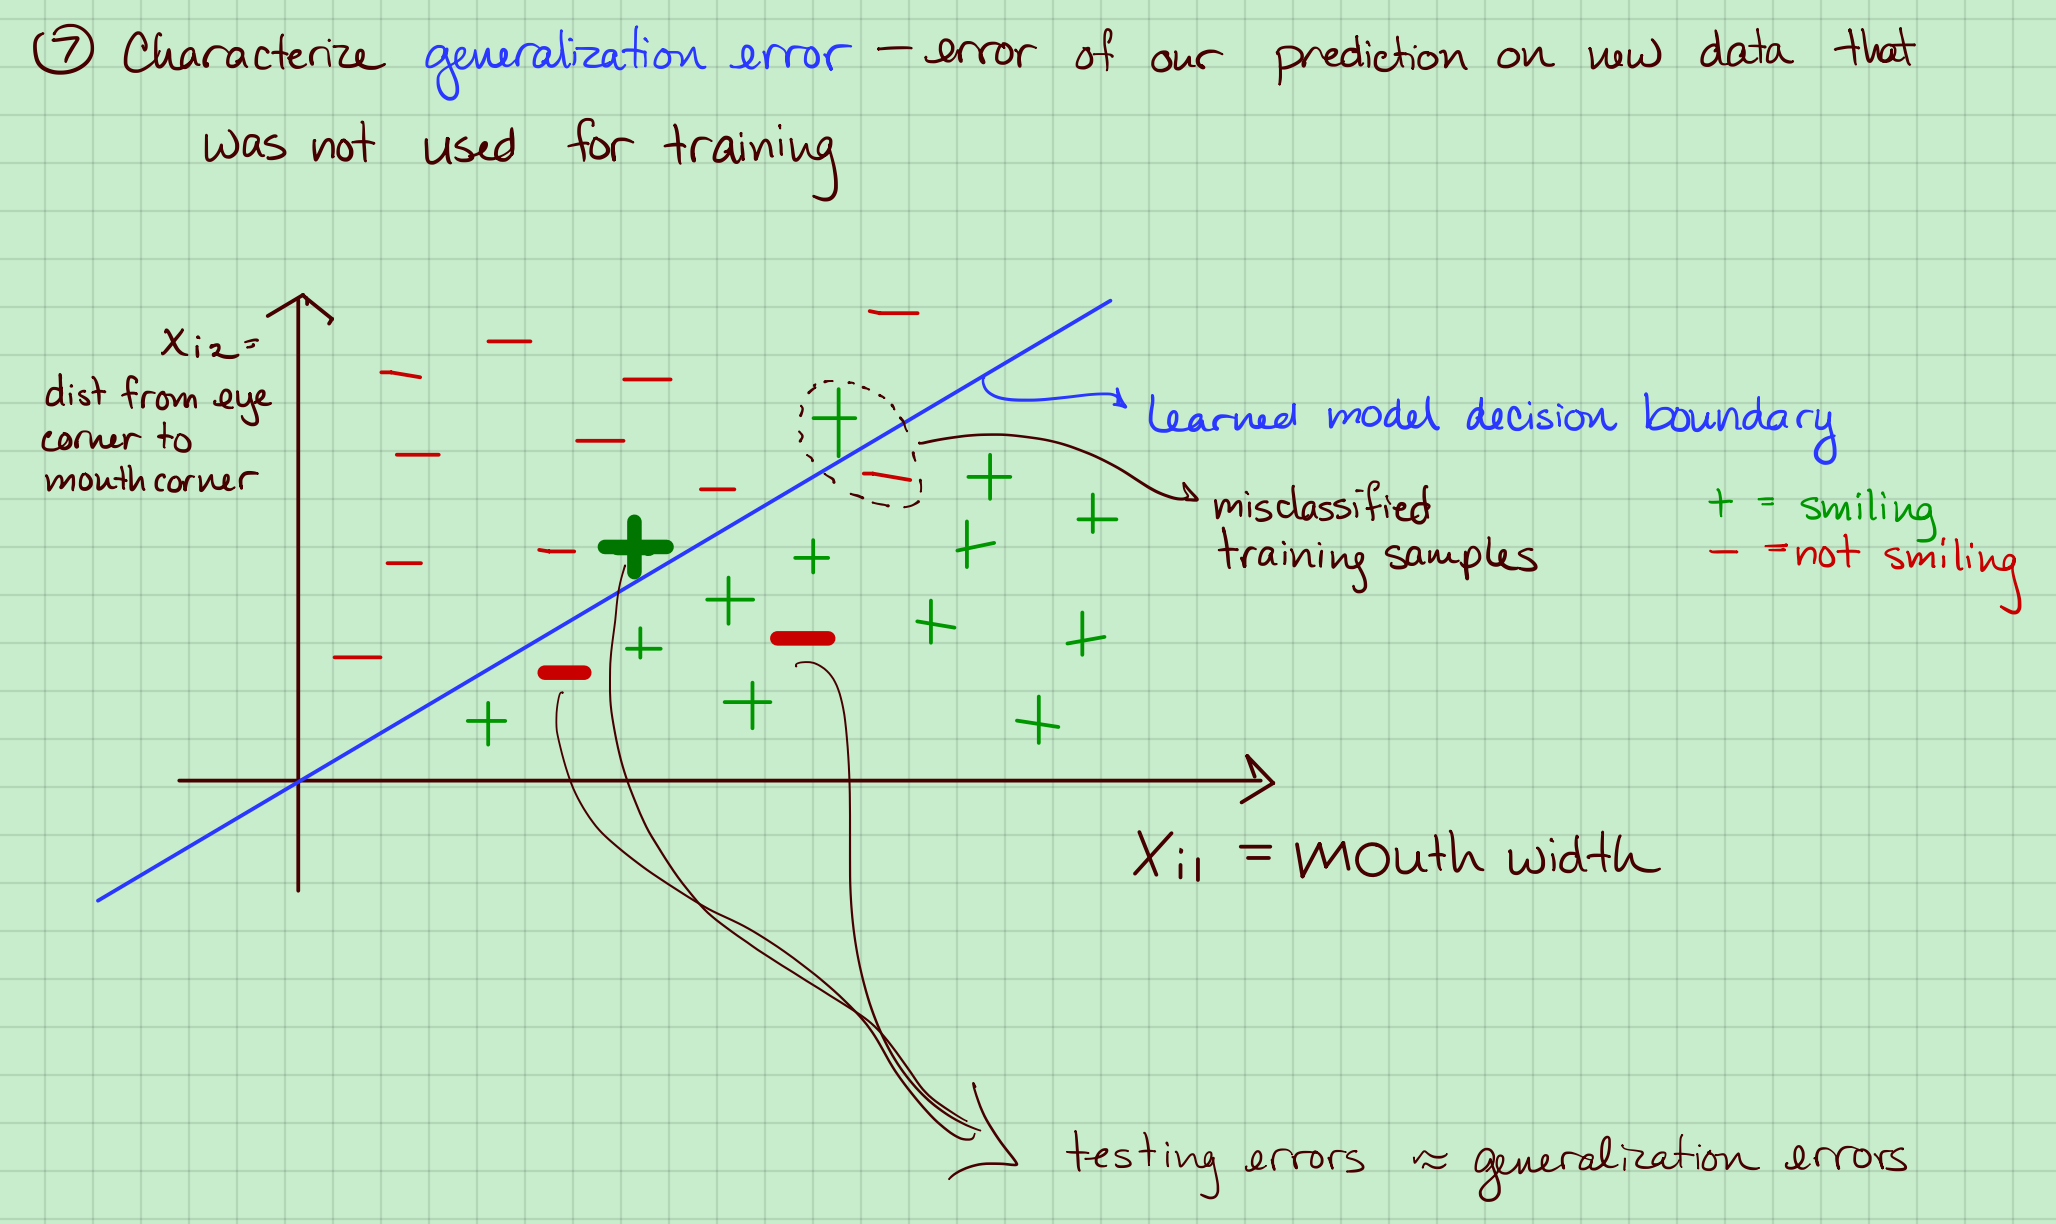 ⑦ Characterize generalization error — error of our prediction on new data that
was not used for training
xi2 =
dist from eye
corner to
mouth corner
learned model decision boundary
misclassified
training samples
+ = smiling
− = not smiling
Xi1 = mouth width
testing errors ≈ generalization errors